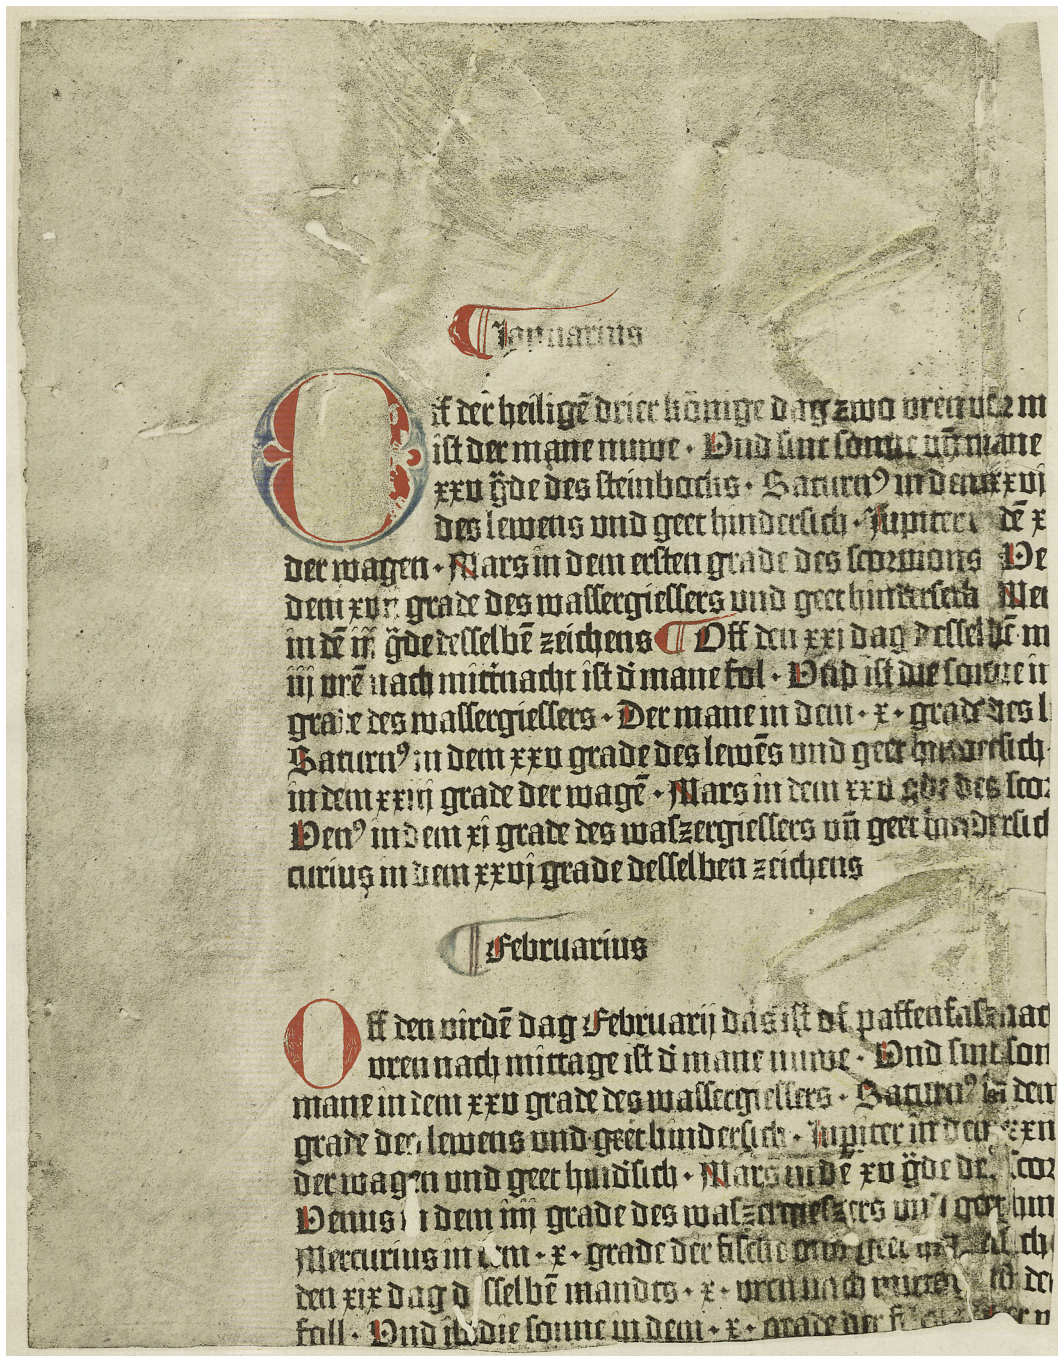 Januarius
Off der heiligē drier könige dag zwo vren vor m
ist der mane nuwe · Vnd sint sonne vñ mane
xxv gͣde des steinbocks · Saturnꝰ in dem xxvj
des lewens vnd geet hindersich · Jupiter dē x
der wagen · Mars in dem ersten grade des scorpions Ve
dem grade des wassergiessers vnd geet hindersich Mer
in dē gͣde desselbē zeichens Off den xxj dag desselbē m
iij vrē nach mitternacht ist d' mane fol · Vnd ist die sonne in
grade des wassergiessers · Der mane in dem · x · grade des l
Saturnꝰ in dem xxv grade des lewēs vnd geet hindersich
in dem xxiij grade der wagē · Mars in dem xxv gͣde des scor
Venꝰ in dem xj grade des waszergiessers vñ geet hindersich
curius in dem xxvj grade desselben zeichens
Februarius
Off den virdē dag Februarij das ist of paffen fasznacht
vren nach mittage ist d' mane nuwe · Vnd sint son
mane in dem xxv grade des wassergiessers · Saturnꝰ in dem
grade des lewens vnd geet hindersich · Jupiter in dem xxv
der wagen vnd geet hind'sich · Mars in dē xv gͣde des scor
Venus in dem iiij grade des waszergieszers vnd geet hin
Mercurius in dem · x · grade der fische vnd geet
den xix dag desselbē mandes · x · vren nach mitten ist der
foll · Vnd ist die sonne in dem · x · grade der